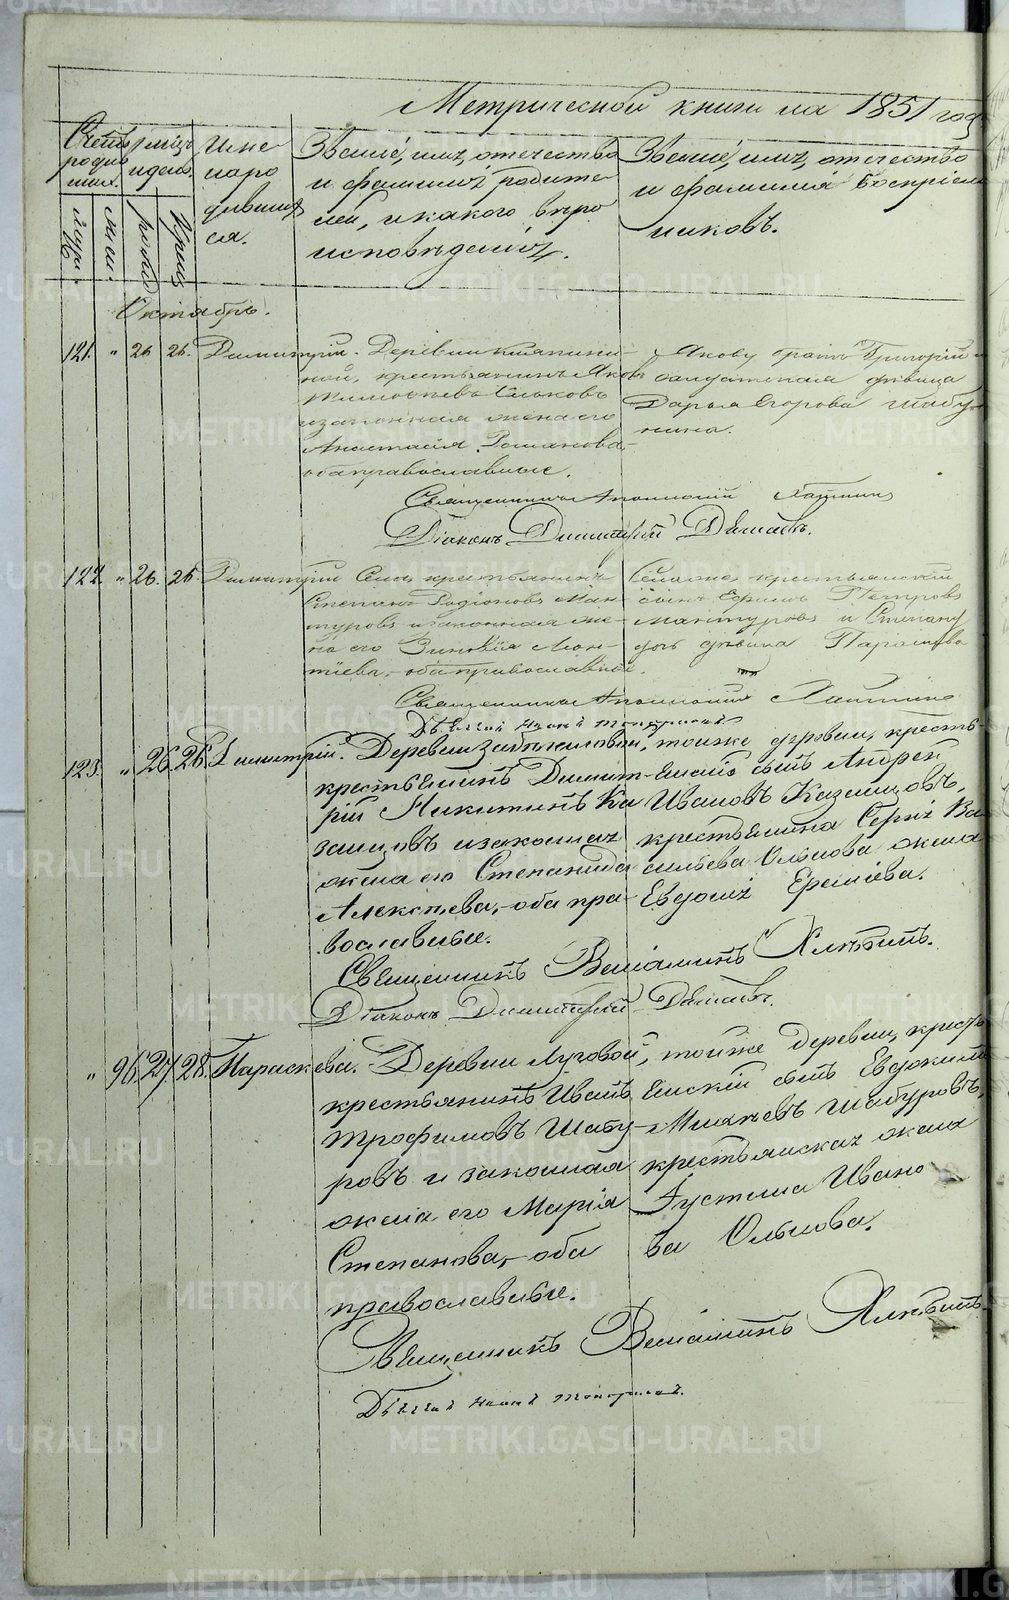 Метрической книги на 1851 год
Счетъ родив шихъ.
Мѣсяцъ и день.
Имена народившихся.
Званіе, имя, отечество
и фамилія родите
лей, и какого вѣро
исповѣданія.
Званіе, имя, отечество
и фамилія воспріем
никовъ.
Октябрь.
121. " 26 26. Димитрій. Деревни
крестьянинъ Яковъ
и законная жена его
Анастасія Романова,
оба православные.
Якову братъ Григорій и
солдатская дѣвица
Дарья Егорова Шабу
рина.
Священникъ Аполлоній Лаптинъ
Діаконъ Димитрій
122. " 26. 26. Димитрій Села крестьянинъ
Степанъ Родіоновъ Ман
туровъ и законная же
на его Зиновія Леон
тіева, оба православные.
Села же крестьянскій
сынъ Ефимъ Петровъ
Мантуровъ и Степану
дочь дѣвица Параскева
Священникъ Аполлоній Лаптинъ
Дьячекъ Иванъ Топорковъ
123. " 26. 26. Димитрій. Деревни
крестьянинъ Димит
рій Никитинъ Ка
занцовъ и законная
жена его Степанида
Алексѣева, оба пра
вославные.
тойже деревни, кресть
янскій сынъ Андрей
Ивановъ Казанцовъ,
крестьянина Сергія Ва
сильева Олькова жена
Евдокія Еремѣева.
Священникъ Веніаминъ Хлѣбинъ.
Діаконъ Димитрій
" 96. 27. 28. Параскева. Деревни Луговой,
крестьянинъ Иванъ
Трофимовъ Шабу
ровъ и законная
жена его Марія
Степанова, оба
православные.
тойже деревни, кресть
янскій сынъ Евдокимъ
Михѣевъ Шабуровъ,
крестьянская жена
Іустина Ивано
ва Олькова.
Священникъ Веніаминъ Хлѣбинъ.
Дьячекъ Иванъ Топорковъ.
METRIKI.GASO-URAL.RU